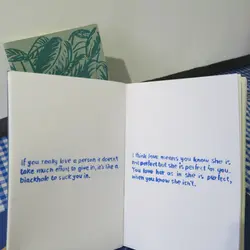 if you really love a person it doesn't
take much effort to give in, it's like a
blackhole to suck you in.
I think love means you know she is
not perfect but she is perfect for you.
You know but as in she is perfect,
when you know she isn't.